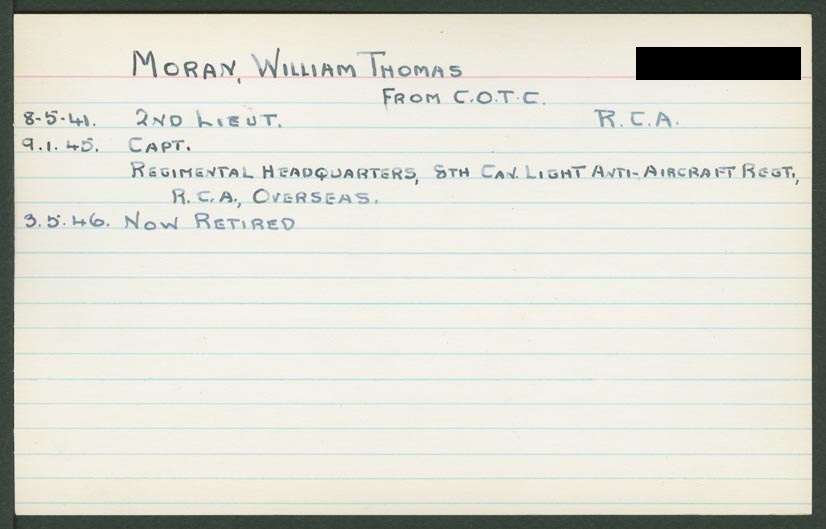 MORAN, WILLIAM THOMAS
FROM C.O.T.C.
8-5-41. 2ND LIEUT. R.C.A.
9.1.45. CAPT.
REGIMENTAL HEADQUARTERS, 8TH CAN. LIGHT ANTI-AIRCRAFT REGT.,
R.C.A., OVERSEAS.
3.5.46. NOW RETIRED